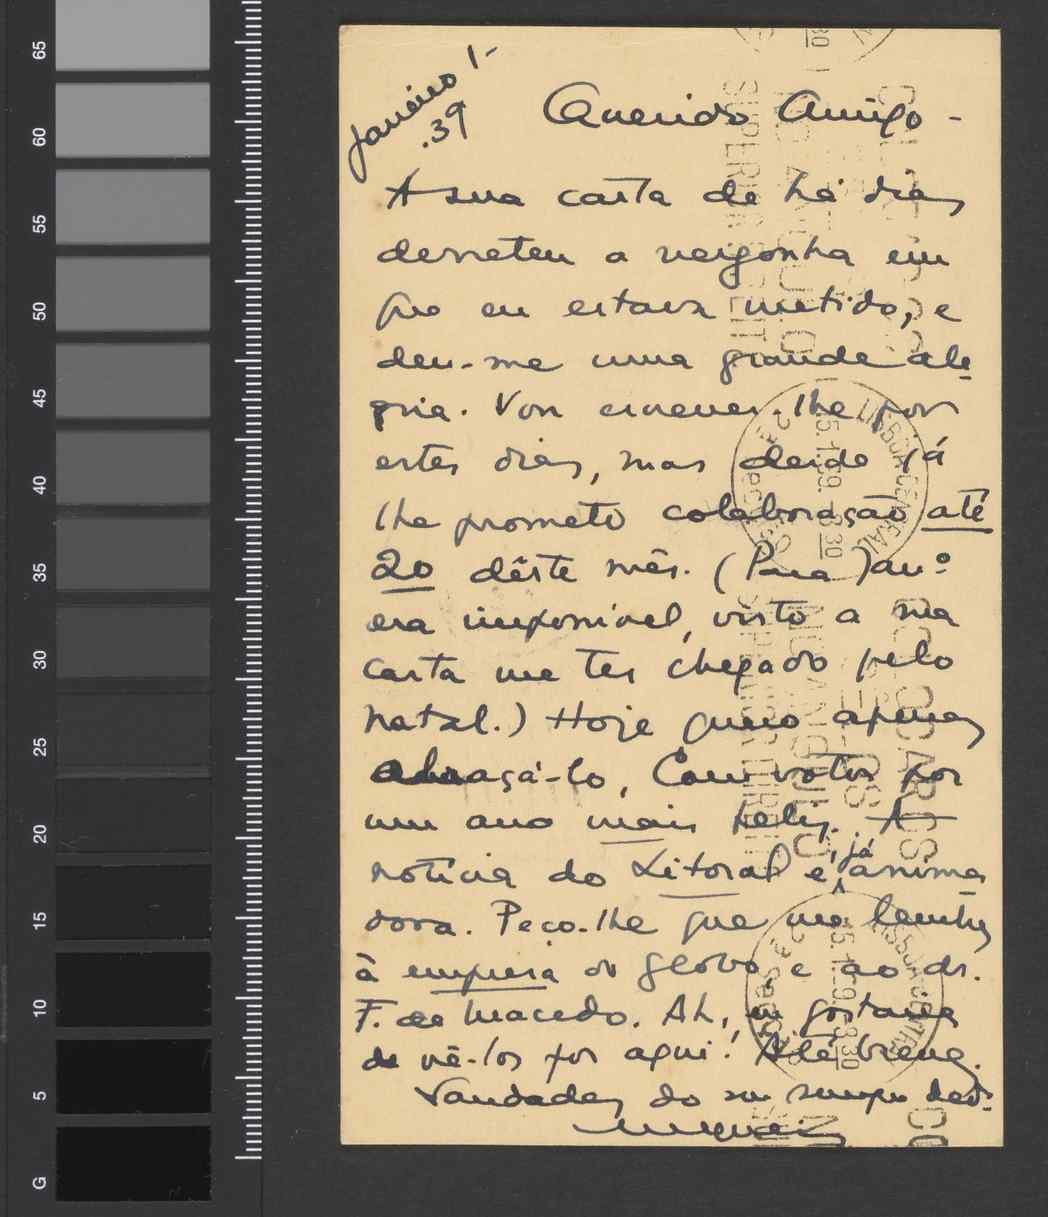 Janeiro 1-
.39
Querido Amigo -
A sua carta de há dias
derreteu a vergonha em
que eu estava metido, e
deu-me uma grande ale
gria. Vou escrever-lhe por
estes dias, mas desde já
lhe prometo colaboração até
20 dêste mês. (Para Jan.º
era impossível, visto a sua
carta me ter chegado pelo
Natal.) Hoje quero apenas
abraçá-lo, Com votos por
um ano mais feliz. A
notícia do Litoral é, já anima
dora. Peço-lhe que me lembre
à empresa do Globo, e ao dr.
F. de Macedo. Ah, eu gostaria
de vê-los por aqui! Até breve.
Saudades do seu sempre ded.º
LISBOA CENTRAL
25.1.39. -8.30
LISBOA CENTRAL
25.1.39. -8.30
G 5 10 15 20 25 30 35 40 45 50 55 60 65